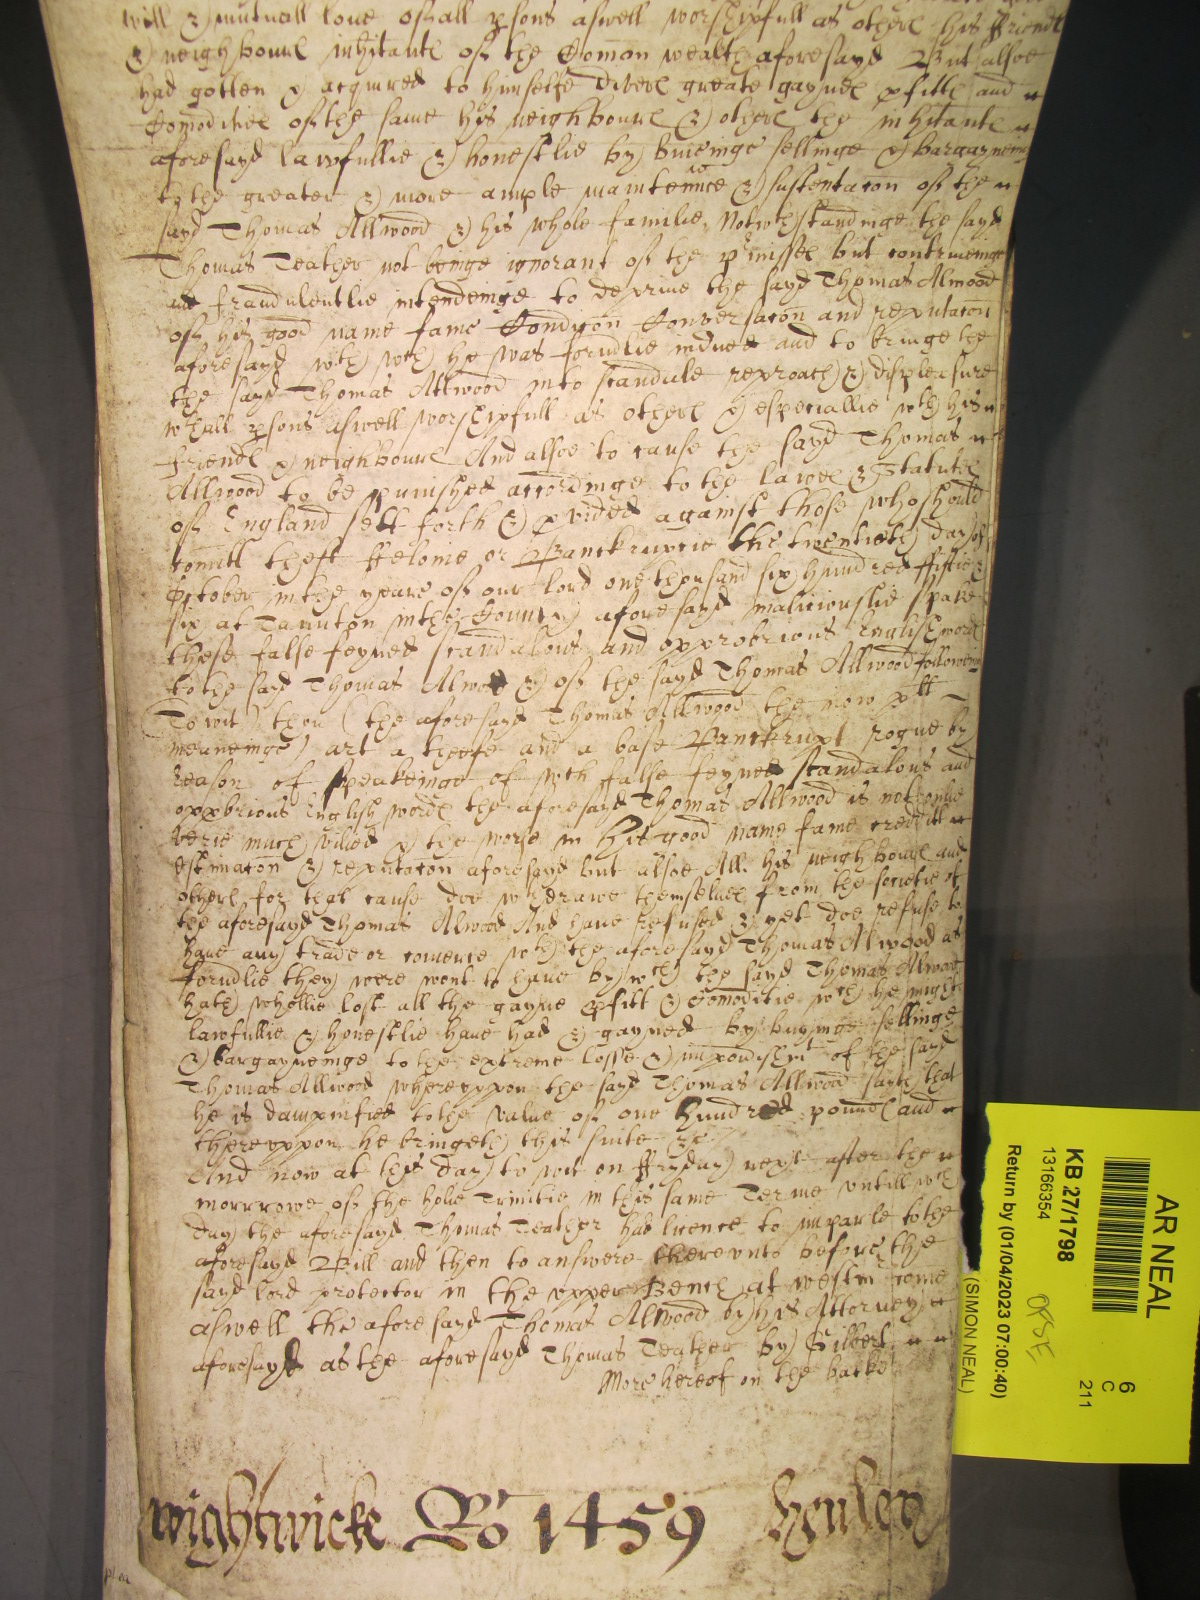 will & mutuall love of all psons aswell worshipfull as others his ffriends
& neighbours inhitants of the Comon wealth aforesayd But alsoe
had gotten & acquired to himselfe divers greate gaynes pfitts and
Comodities of the same his neighbours & others the inhitants
aforesayd lawfullie & honestlie by buieinge sellinge & bargayneing
to the greater & more ample maintennce & sustentacon of the
sayd Thomas Allwood & his whole familie, Notwthstandinge the sayd
Thomas Teather not beinge ignorant of the pmisses but contriveinge
and fraudulentlie intendeinge to deprive the sayd Thomas Alwood
of his good name fame Condicon Conversacon and reputacon
aforesayd wth wch he was formlie indued and to bringe the
the sayd Thomas Allwood into scandale reproach & displeasure
wth all psons aswell worshipfull as others & especiallie wth his
friends & neighbours And alsoe to cause the sayd Thomas
Allwood to be punished accordinge to the lawes & Statutes
of England sett forth & pvided against those who should
comitt theft ffelonie or Banckruptcie the twentieth day of
October in the yeare of our lord one thousand six hundred ffiftie &
six at Taunton in the County aforesayd maliciouslie spake
these false feyned scandalous and opprobrious English words
to the sayd Thomas Alwood & of the sayd Thomas Allwood followeing
To wit) thou (the aforesayd Thomas Allwood the now plt
meaneinge) art a theefe and a base Banckrupt rogue by
reason of speakeinge of wch false feyned scandalous and
oppbrious English words the aforesayd Thomas Allwood is not onlie
verie much vilied & the worse in his good name fame creditt
estimacon & reputacon aforesayd but alsoe All his neighbours and
others for that cause doe wthdrawe themselves from the societie of
the aforesayd Thomas Alwood And have refused & yet doe refuse to
have any trade or comerce wth the aforesayd Thomas Alwood as
formlie they were wont to have by wch the sayd Thomas Allwood
hath whollie lost all the gayne pfitt & Comoditie wch he might
lawfullie & honestlie have had & gayned by buyinge sellinge
& bargayneinge to the extreme losse & impovishmt of the sayd
Thomas Allwood whereuppon the sayd Thomas Allwood sayth that
he is dampnified to the value of one hundred pounds and
thereuppon he bringeth this suite &c
And now at this day to wit on ffryday next after the
morrrowe of the holie Trinitie in this same Terme untill wch
day the aforesayd Thomas Teather had licence to imparle to the
aforesayd Bill and then to answere thereunto before the
sayd lord protector in the upper Bench at westm come
aswell the aforesayd Thomas Allwood by his Attorney
aforesayd as the aforesayd Thomas Teather by Gilbert
More hereof on the backe
wightwicke Ro 1459 henley
AR NEAL
6
C
211
KB 27/1798
13166354
Return by (01/04/2023 07:00:40)
(SIMON NEAL)